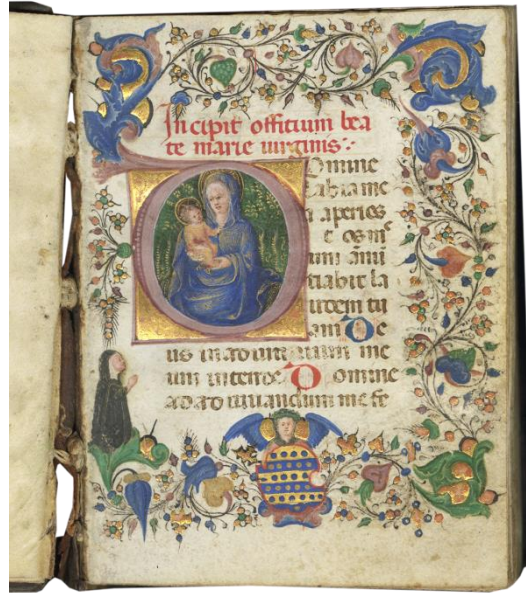 In cipit offitium bea
te marie uirginis :·
Domine
labia me
a aperies
et os mm̄
um annū
tiabit la
udem tu
am De
us in adiutorium me
um intende Domine
ad adiuuandum me fe